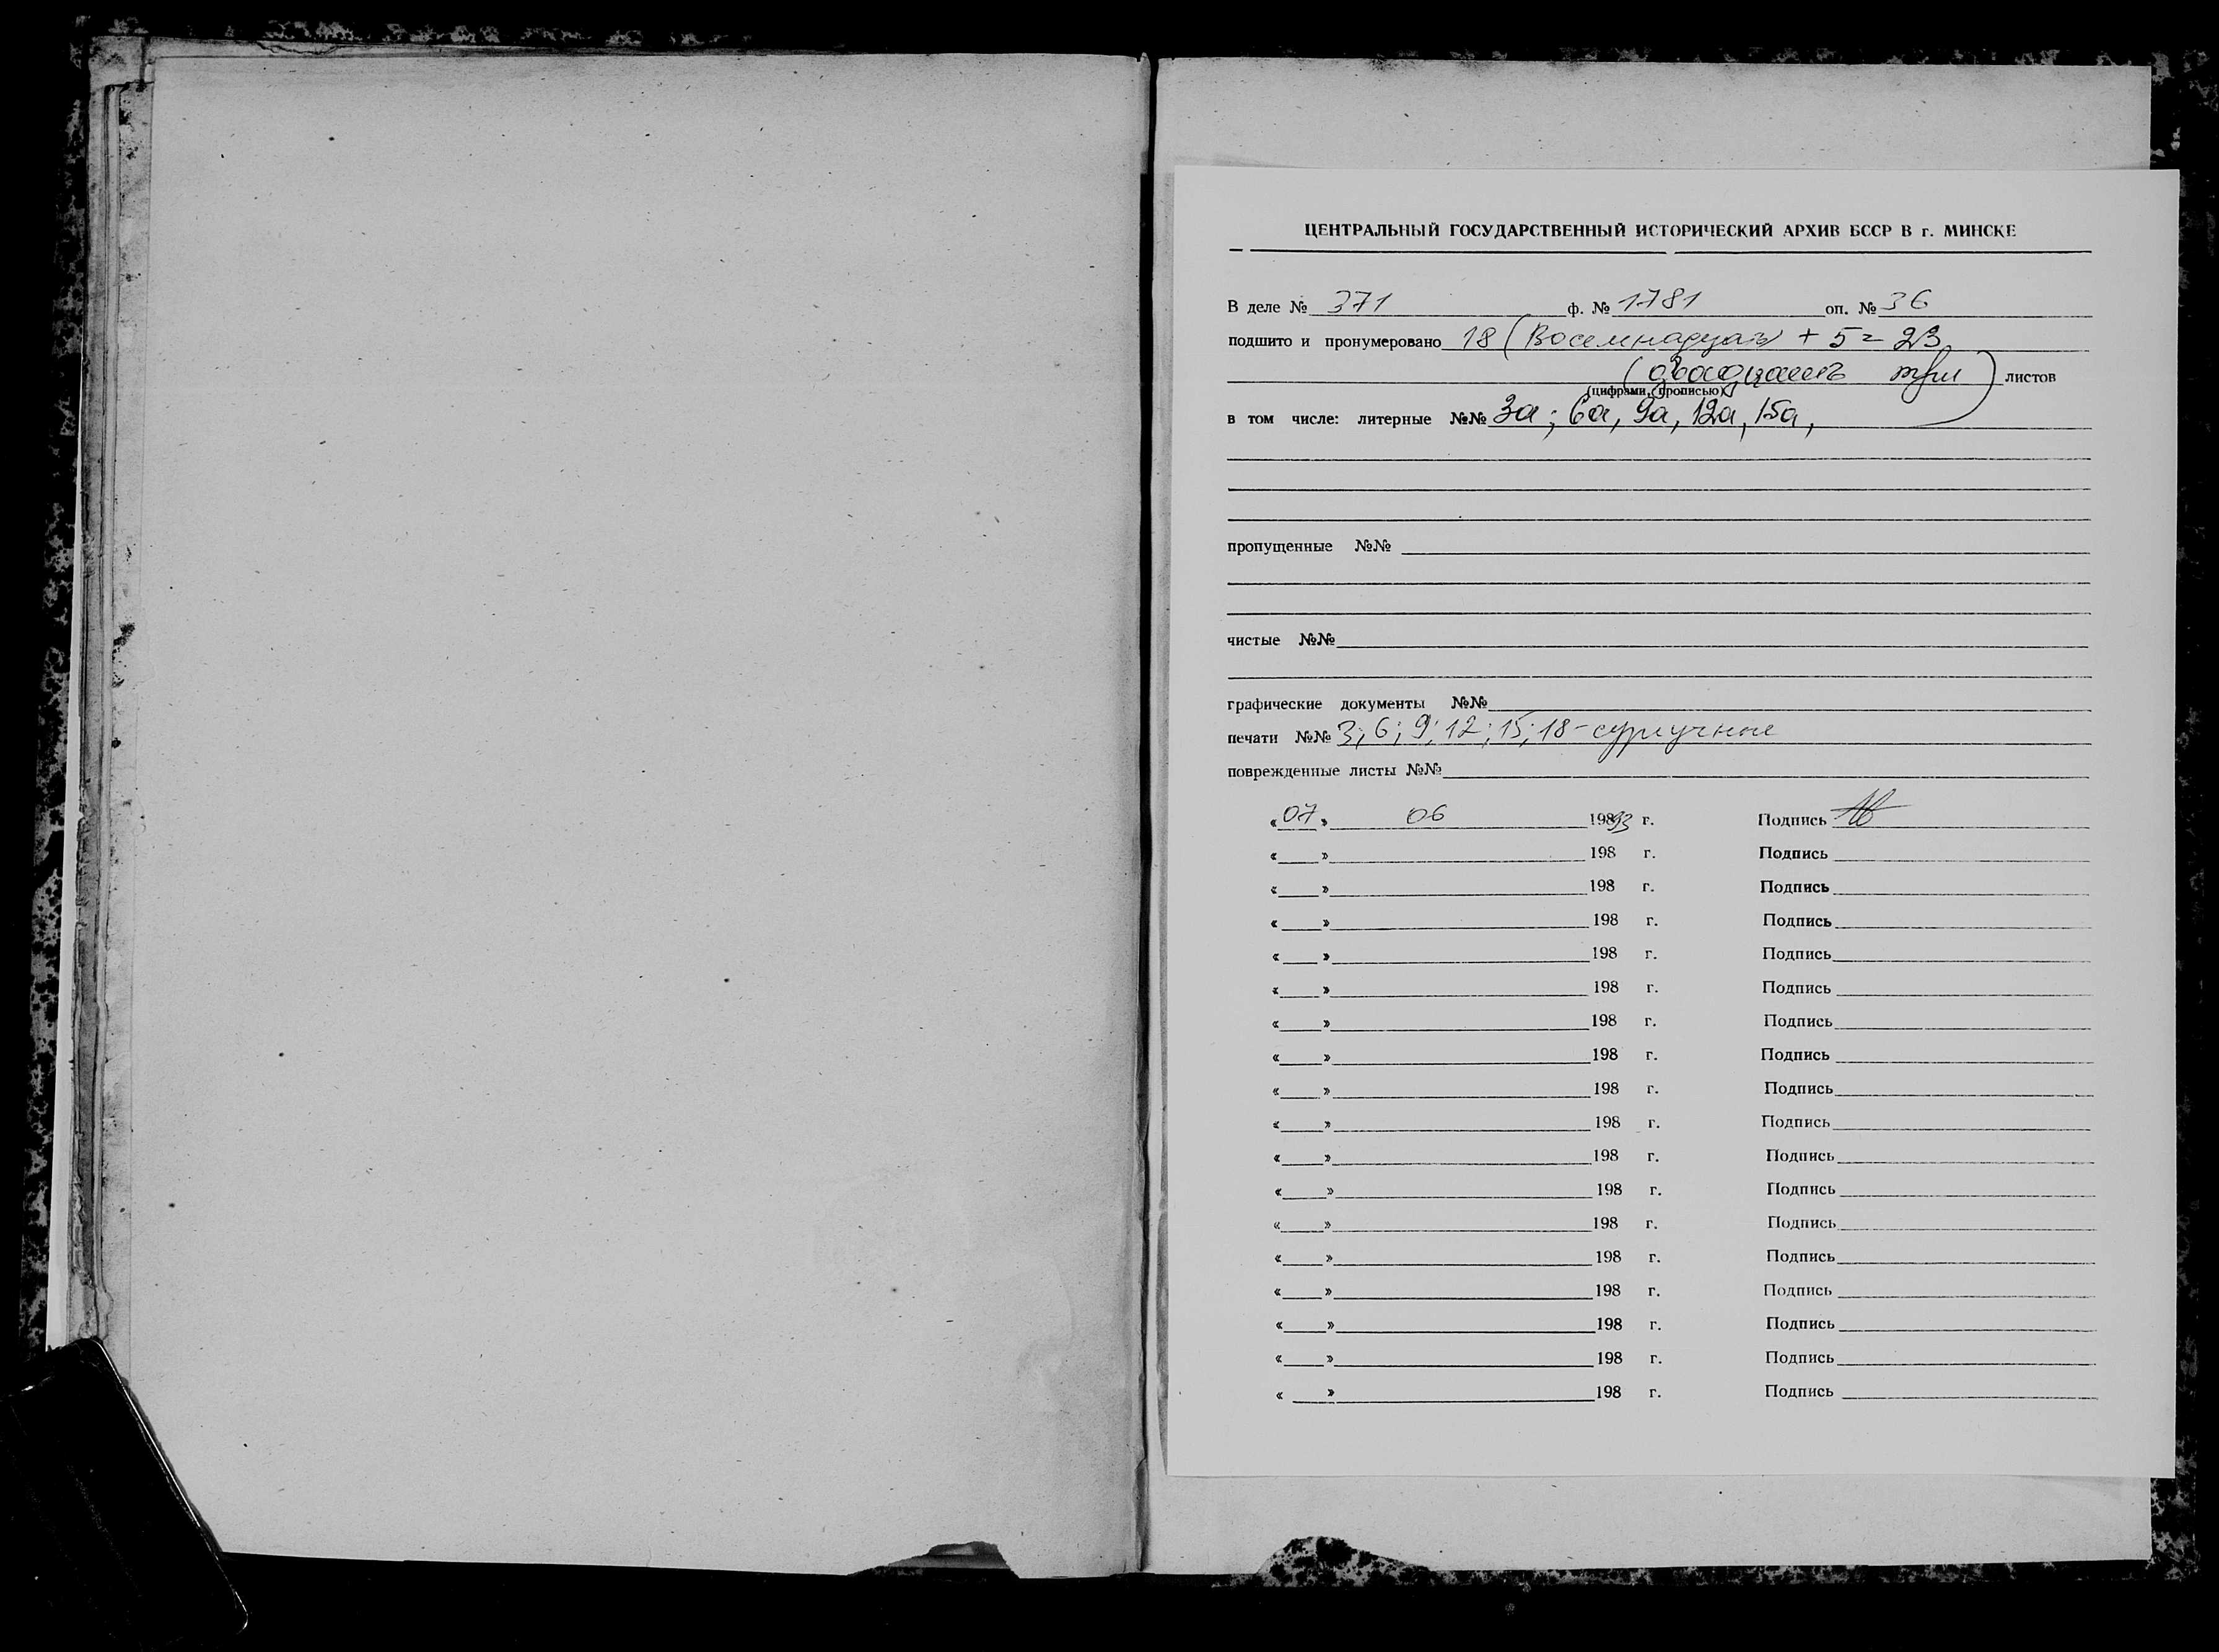 ЦЕНТРАЛЬНЫЙ ГОСУДАРСТВЕННЫЙ ИСТОРИЧЕСКИЙ АРХИВ БССР В г. МИНСКЕ
В деле № 371 ф. № 1781 оп. № 36
подшито и пронумеровано 18 (Восемнадцать + 5 = 23
(двадцать три) листов
(цифрами, прописью)
в том числе: литерные №№ 3а; 6а, 9а, 12а, 15а,
пропущенные №№
чистые №№
графические документы №№
печати №№ 3; 6; 9; 12; 15; 18 - сургучные
поврежденные листы №№
« 07 » 06 19893 г. Подпись
« » 198 г. Подпись
« » 198 г. Подпись
« » 198 г. Подпись
« » 198 г. Подпись
« » 198 г. Подпись
« » 198 г. Подпись
« » 198 г. Подпись
« » 198 г. Подпись
« » 198 г. Подпись
« » 198 г. Подпись
« » 198 г. Подпись
« » 198 г. Подпись
« » 198 г. Подпись
« » 198 г. Подпись
« » 198 г. Подпись
« » 198 г. Подпись
« » 198 г. Подпись